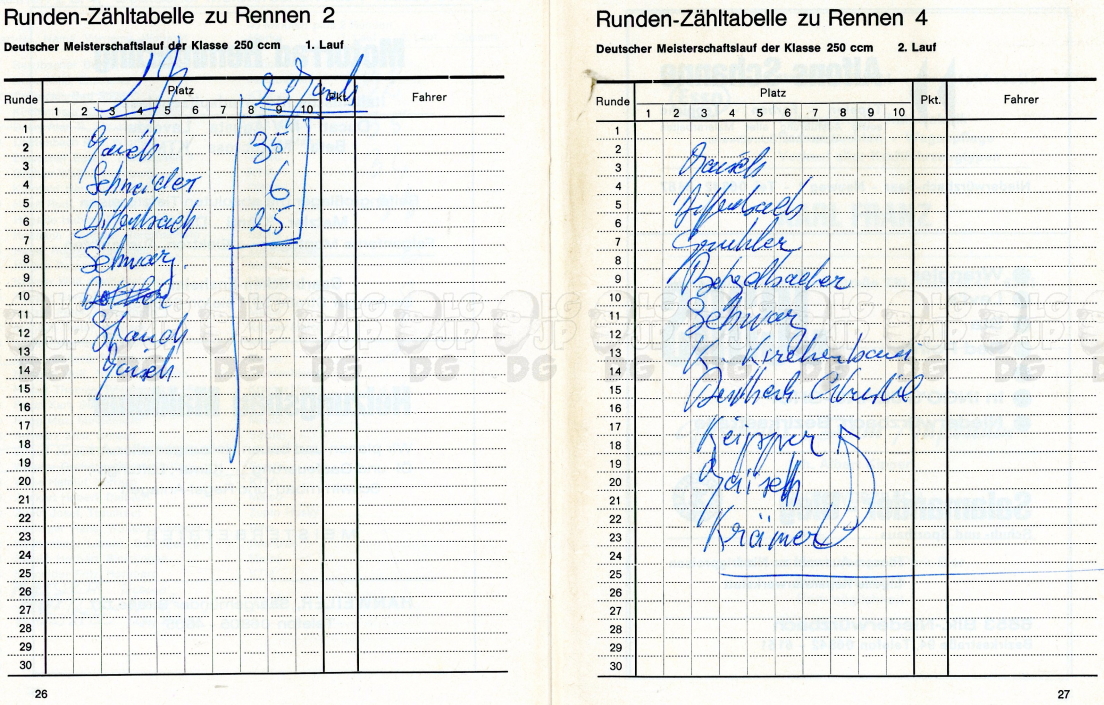 Runden-Zähltabelle zu Rennen 2
Deutscher Meisterschaftslauf der Klasse 250 ccm 1. Lauf
Runde Platz Pkt. Fahrer
1 2 3 4 5 6 7 8 9 10
1
2
3
4
5
6
7
8
9
10
11
12
13
14
15
16
17
18
19
20
21
22
23
24
25
26
27
28
29
30
35
Schneider 6
Diffenbach 25
Schwarz
26
Runden-Zähltabelle zu Rennen 4
Deutscher Meisterschaftslauf der Klasse 250 ccm 2. Lauf
Runde Platz Pkt. Fahrer
1 2 3 4 5 6 7 8 9 10
1
2
3
4
5
6
7
8
9
10
11
12
13
14
15
16
17
18
19
20
21
22
23
24
25
26
27
28
29
30
Diffenbach
Schwarz
K. Kirchenbauer
Keipper
Krämer
27
DG